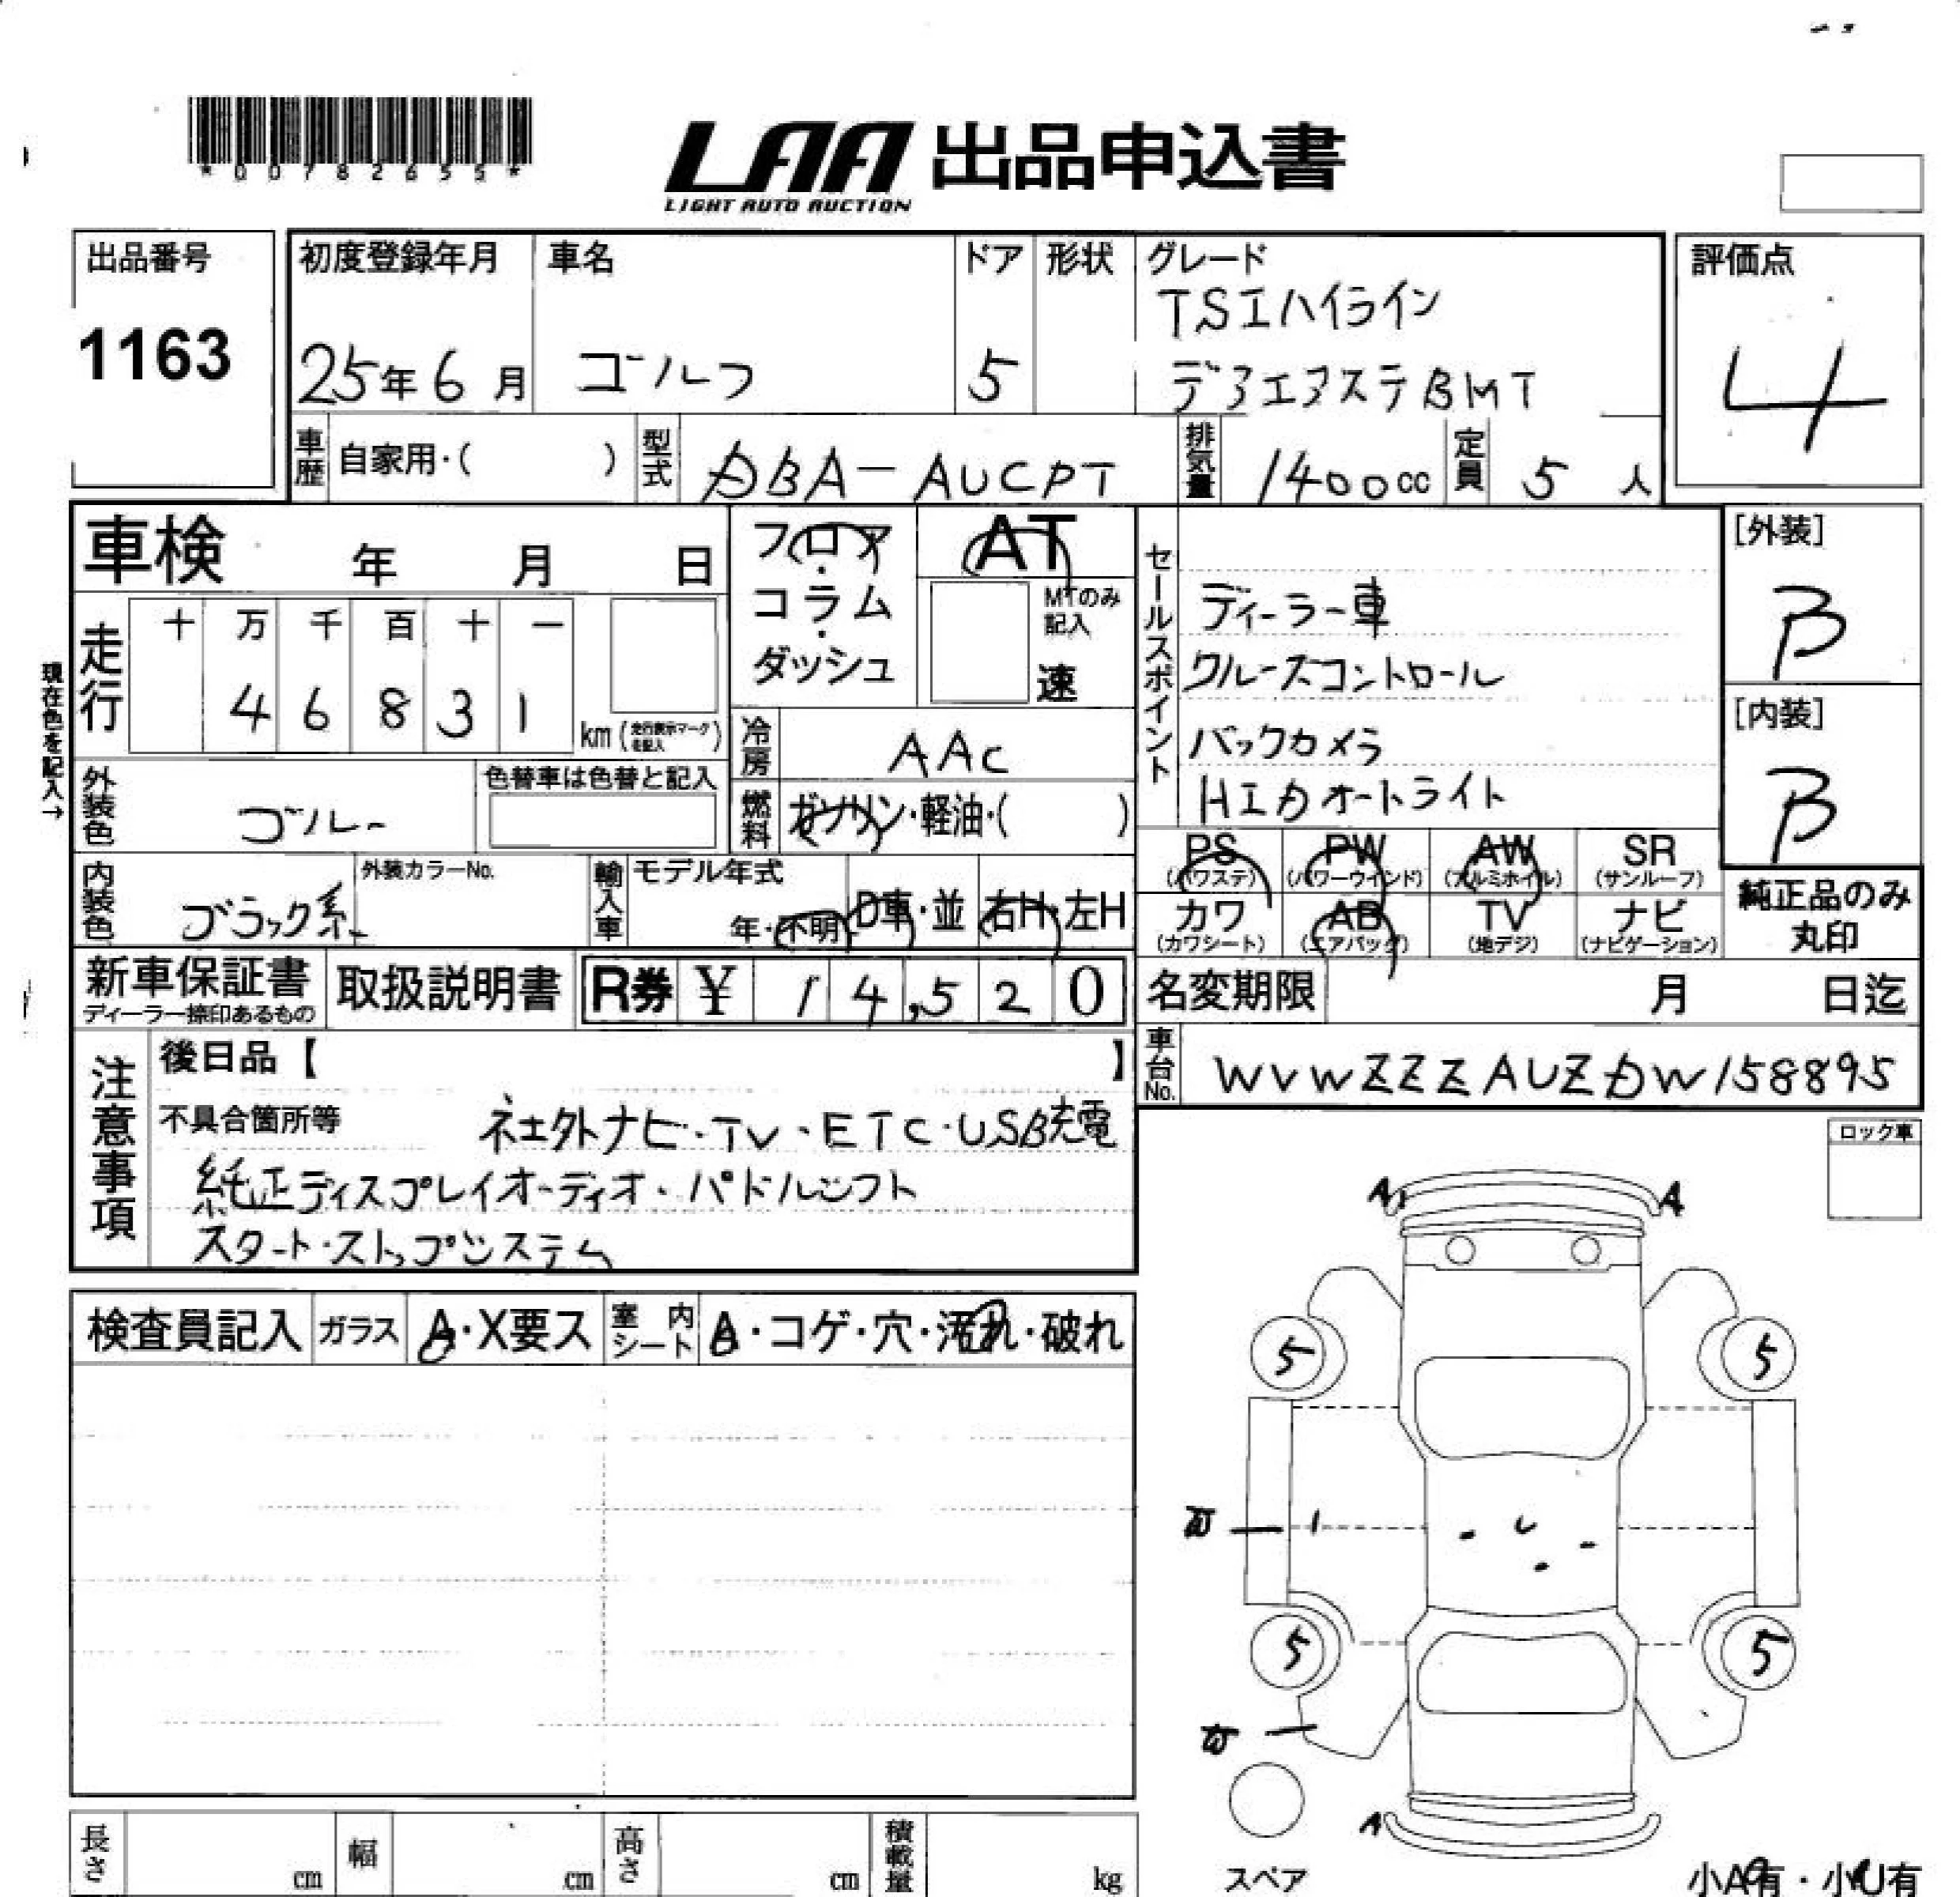 *00782655*
LAA 出品申込書
LIGHT AUTO AUCTION
出品番号 1163
初度登録年月 25年6月
車名 ゴルフ
ドア 5
形状
グレード TSIハイライン
デアエアステBMT
評価点 4
車歴 自家用・( )
型式 DBA-AUCPT
排気量 1400cc
定員 5人
車検 年 月 日
フロア・コラム・ダッシュ
AT
MTのみ記入 速
セールスポイント
ディーラー車
クルーズコントロール
バックカメラ
HIDオートライト
[外装] B
[内装] B
現在色を記入→
走行 十 万 千 百 十 一
46831 km (走行表示マークを記入)
冷房 AAC
燃料 ガソリン・軽油・( )
外装色 ゴルー
色替車は色替と記入
内装色 ブラック系
外装カラーNo.
輸入車 モデル年式 年・不明
D車・並 右H・左H
PS (パワステ) PW (パワーウインド) AW (アルミホイル) SR (サンルーフ)
カワ (カワシート) AB (エアバッグ) TV (地デジ) ナビ (ナビゲーション)
純正品のみ丸印
新車保証書 ディーラー捺印あるもの
取扱説明書
R券 ¥ 14,520
名変期限 月 日迄
車台No. WVWZZZAUZDW158895
注意事項
後日品【 】
不具合箇所等 社外ナビ・TV・ETC・USB充電
純正ディスプレイオーディオ・パドルシフト
スタート・ストップシステム
ロック車
A A
検査員記入 ガラス A・X要ス 室内シート A・コゲ・穴・汚れ・破れ
5 5
W
5 5
W
A
スペア
小A有・小U有
長さ cm 幅 cm 高さ cm 積載量 kg